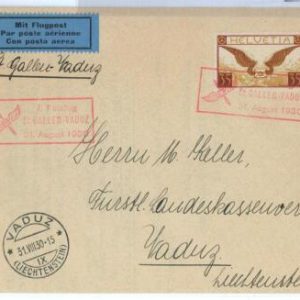 Mit Flugpost
Par poste aérienne
Con posta aerea
HELVETIA
35
35
St Gallen-Vaduz
ST. GALLEN-VADUZ
31. August 1930
ST. GALLEN-VADUZ
31. August 1930
Herrn M. Galler,
Fürstl. Landeskassenver
Vaduz.
Liechtenstein
VADUZ
31.VIII.30-15
IX
(LIECHTENSTEIN)